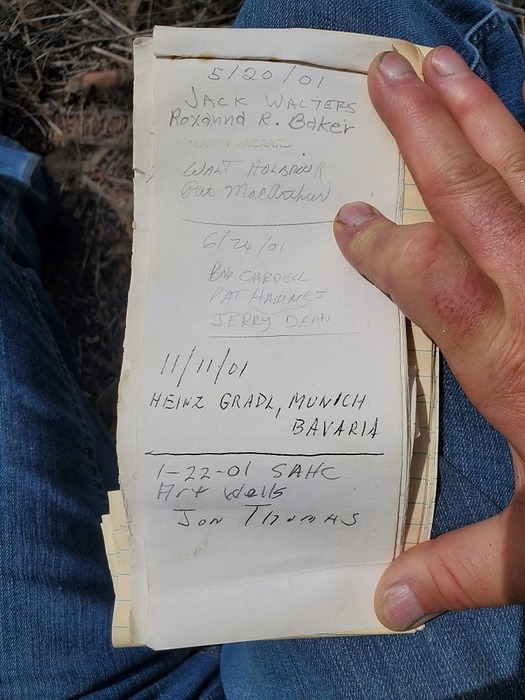 5/20/01
JACK WALTERS
Roxanna R. Baker
WALT
Pat MacArthur
6/24/01
BOB CARDELL
PAT HAMMES
JERRY DEAN
11/11/01
HEINZ GRADL, MUNICH
BAVARIA
1-22-01 SAHC
Art Wells
JON THOMAS